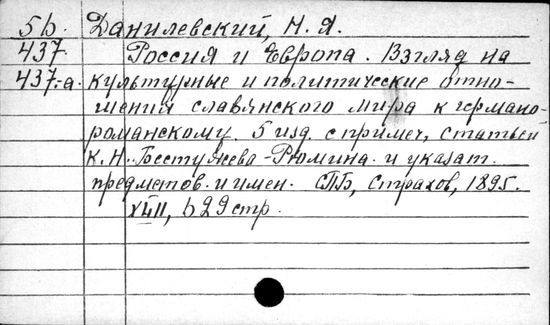 5b. Данилевский, Н. Я.
437 Россия и Европа. Взгляд на
437-a культурные и политические отно-
шения славянского мира к германо-
романскому. 5 изд. с примеч. статьей
К. Н. Бестужева-Рюмина и указат.
предметов и имен. СПБ, Страхов, 1895.
629 стр.